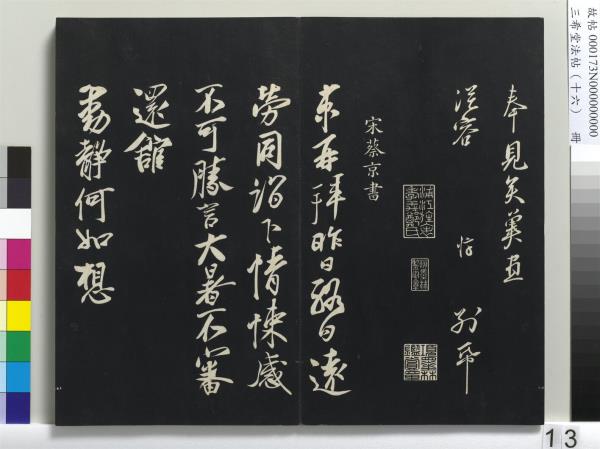 故帖 000173N000000000
三希堂法帖（十六） 冊
奉見矣冀
從容 忰 別帋
宋蔡京書
京再拜昨日終日遠
勞同詣下情悚感
不可勝言大暑不審
還舘
動靜何如想
13